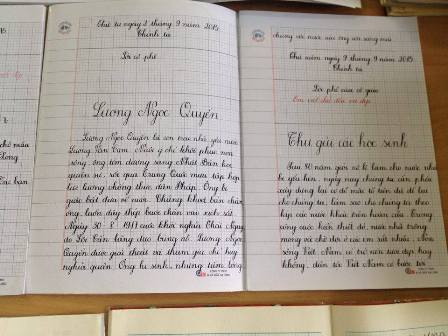 Thứ tư ngày 9 tháng 9 năm 2015
Chính tả
Lời cô phê
Lương Ngọc Quyến
Lương Ngọc Quyến là con trai nhà yêu nước
Lương Văn Can. Nuôi ý chí khôi phục non
sông, ông tìm đường sang Nhật Bản học
quân sự, rồi qua Trung Quốc mưu tập hợp
lực lượng chống thực dân Pháp. Ông bị
giặc bắt đưa về nước. Chúng khoét bàn chân
ông, luồn dây thép buộc chân vào xích sắt.
Ngày 30 - 8 - 1917 cuộc khởi nghĩa Thái Nguyên
do Đội Cấn lãnh đạo bùng nổ. Lương Ngọc
Quyến được giải thoát và tham gia chỉ huy
nghĩa quân. Ông hi sinh, nhưng tấm lòng
chung với nước của ông còn sáng mãi.
Thứ năm ngày 9 năm 2015
Chính tả
Lời phê của cô giáo
Em viết chữ đều và đẹp
Thư gửi các học sinh
Sau 80 năm giời nô lệ làm cho nước nhà
bị yếu hèn, ngày nay chúng ta cần phải
xây dựng lại cơ đồ mà tổ tiên đã để lại
cho chúng ta, làm sao cho chúng ta theo
kịp các nước khác trên hoàn cầu. Trong
công cuộc kiến thiết đó, nước nhà trông
mong và chờ đợi ở các em rất nhiều. Non
sông Việt Nam có trở nên tươi đẹp hay
không, dân tộc Việt Nam có bước tới